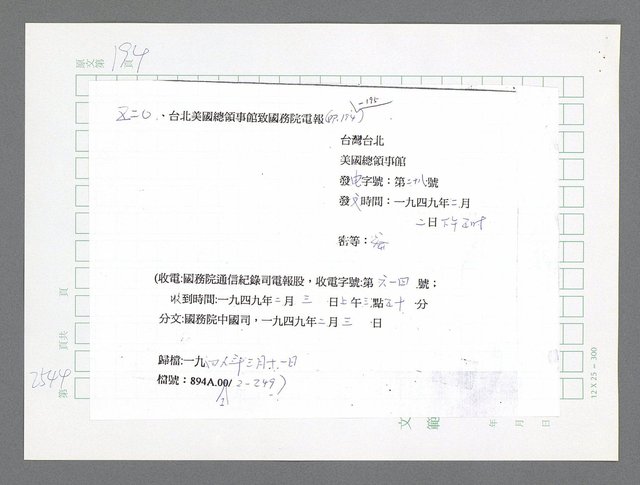 原文第194頁
台北美國總領事館致國務院電報(pp.194-195
台灣台北
美國總領事館
發电字號：第二十八號
發文時間：一九四九年二月
二日下午五时
密等：密
(收電:國務院通信紀錄司電報股，收電字號:第六一四號；
收到時間:一九四九年二月三日上午三點五十分
分文:國務院中國司，一九四九年二月三日
歸檔:一九四九年三月十一日
檔號：894A.00/2-249)
第2544頁共 頁
文 範
年 月 日
12 X 25 = 300